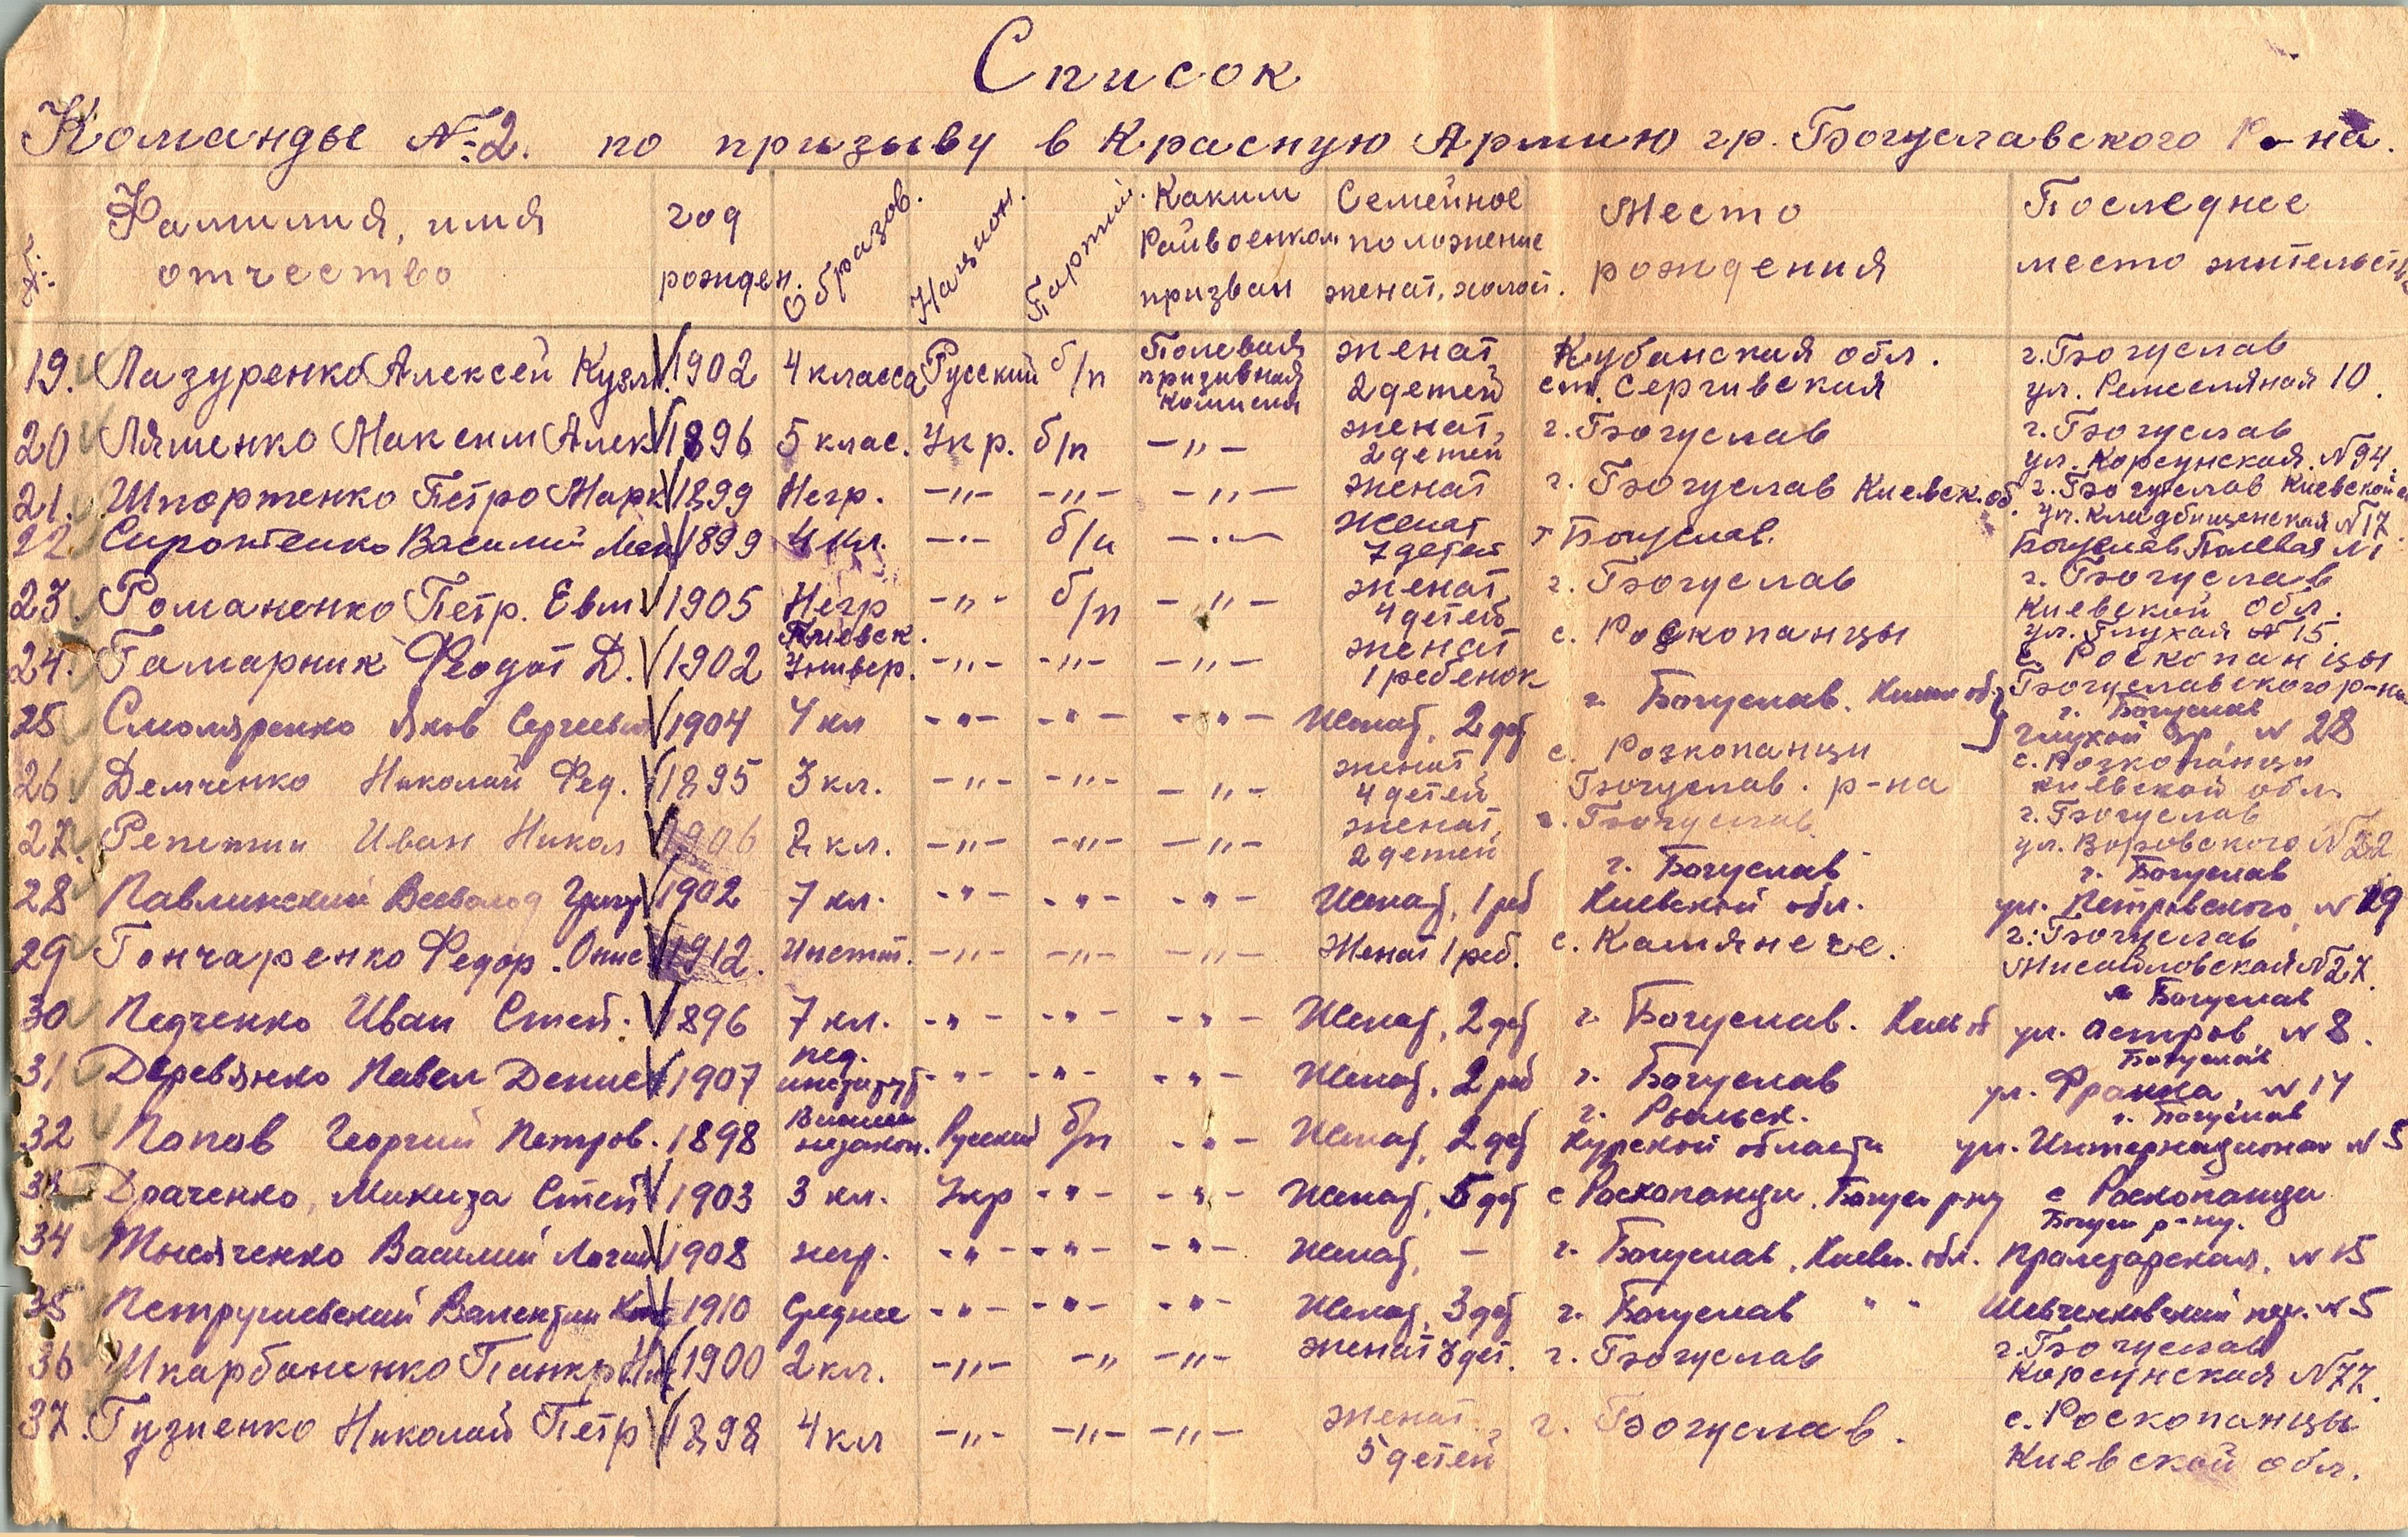 Список
Команды №2. по призыву в Красную Армию гр. Богуславского Р-на.
№ Фамилия, имя отчество год рожден. Образов. Национ. Партий. Каким Райвоенком призван Семейное положение женат, холост. Место рождения Последнее место жительств
19. Лазуренко Алексей Кузм. 1902 4 класса Русский б/п Полевая призивная комисия женат, 2 детей Кубанская обл. ст. Сергивская г. Богуслав ул. Ремесляная 10.
20 Ляшенко Максим Алек 1896 5 клас. Укр. б/п -"- женат, 2 детей г. Богуслав г. Богуслав ул. Корсунская №94.
21. Шпортенко Петро Марк 1899 Негр. -"- -"- -"- женат г. Богуслав Киевск. об. г. Богуслав Киевской ул. Кладбищенская №17.
22 Василий 1899 4 кл. -"- б/п -"- Женат 7 детей г Богуслав. Богуслав Полевая №1
23. Романенко Петр. Евм 1905 Негр -"- б/п -"- женат, 4 детей г. Богуслав г. Богуслав Киевской обл. ул. Глухая №15.
24. Гамарник Феодот Д. 1902 Киевск. Универ. -"- -"- -"- женат 1 ребенок с. Роскопанцы с. Роскопанцы Богуславского р-на
25 Смоляренко Яков Сергеев 1904 4 кл -"- -"- -"- Женат, 2 дет г. Богуслав. Киевск об. г. Богуслав Глухой №28
26. Демченко Николай Фед. 1895 3 кл. -"- -"- -"- женат, 4 детей с. Розкопанци Богуслав. р-на с. Розкопанци киевской обл.
27. Репетин Иван Никол 1906 2 кл. -"- -"- -"- женат, 2 детей г. Богуслав. г. Богуслав ул. Воровского №22
28 Павлинский Всеволод Григ 1902 7 кл. -"- -"- -"- Женат, 1 реб г. Богуслав Киевской обл. г. Богуслав ул. Петровского №19
29 Гончаренко Федор. Онис 1912. Инстит. -"- -"- -"- Женат 1 реб. с. Камянече. г. Богуслав №27.
30 Педченко Иван Степ. 1896 7 кл. -"- -"- -"- Женат, 2 дет г. Богуслав. Киев об Богуслав ул. Остров, №8.
31 Деревянко Павел Денис 1907 пед. институт -"- -"- -"- Женат, 2 реб г. Богуслав Богуслав ул. Франка, №14
32 Попов Георгий Петров. 1898 Высшее незакон. Русский б/п -"- Женат, 2 дет г. Рыльск. Курской области г. Богуслав ул. Интернационал №5
33 Драченко, Микита Степ 1903 3 кл. Укр -"- -"- Женат, 5 дет с Роскопанци. Богусл р-ну с Роскопанци Богусл р-ну.
34 Тысяченко Василий 1908 негр. -"- -"- -"- Женат, - г. Богуслав, Киевск. обл. Пролетарская, №15
35 Петрушевский Валентин 1910 Среднее -"- -"- -"- Женат, 3 дет г. Богуслав " " Шевченковский пер. №5
36 Шкарбаненко Панкр 1900 2 кл. -"- -"- -"- женат 3 дет. г. Богуслав г. Богуслав Корсунская №77.
37. Гузиенко Николай Петр 1898 4 кл -"- -"- -"- женат, 5 детей г. Богуслав. с. Роскопанцы Киевской обл.